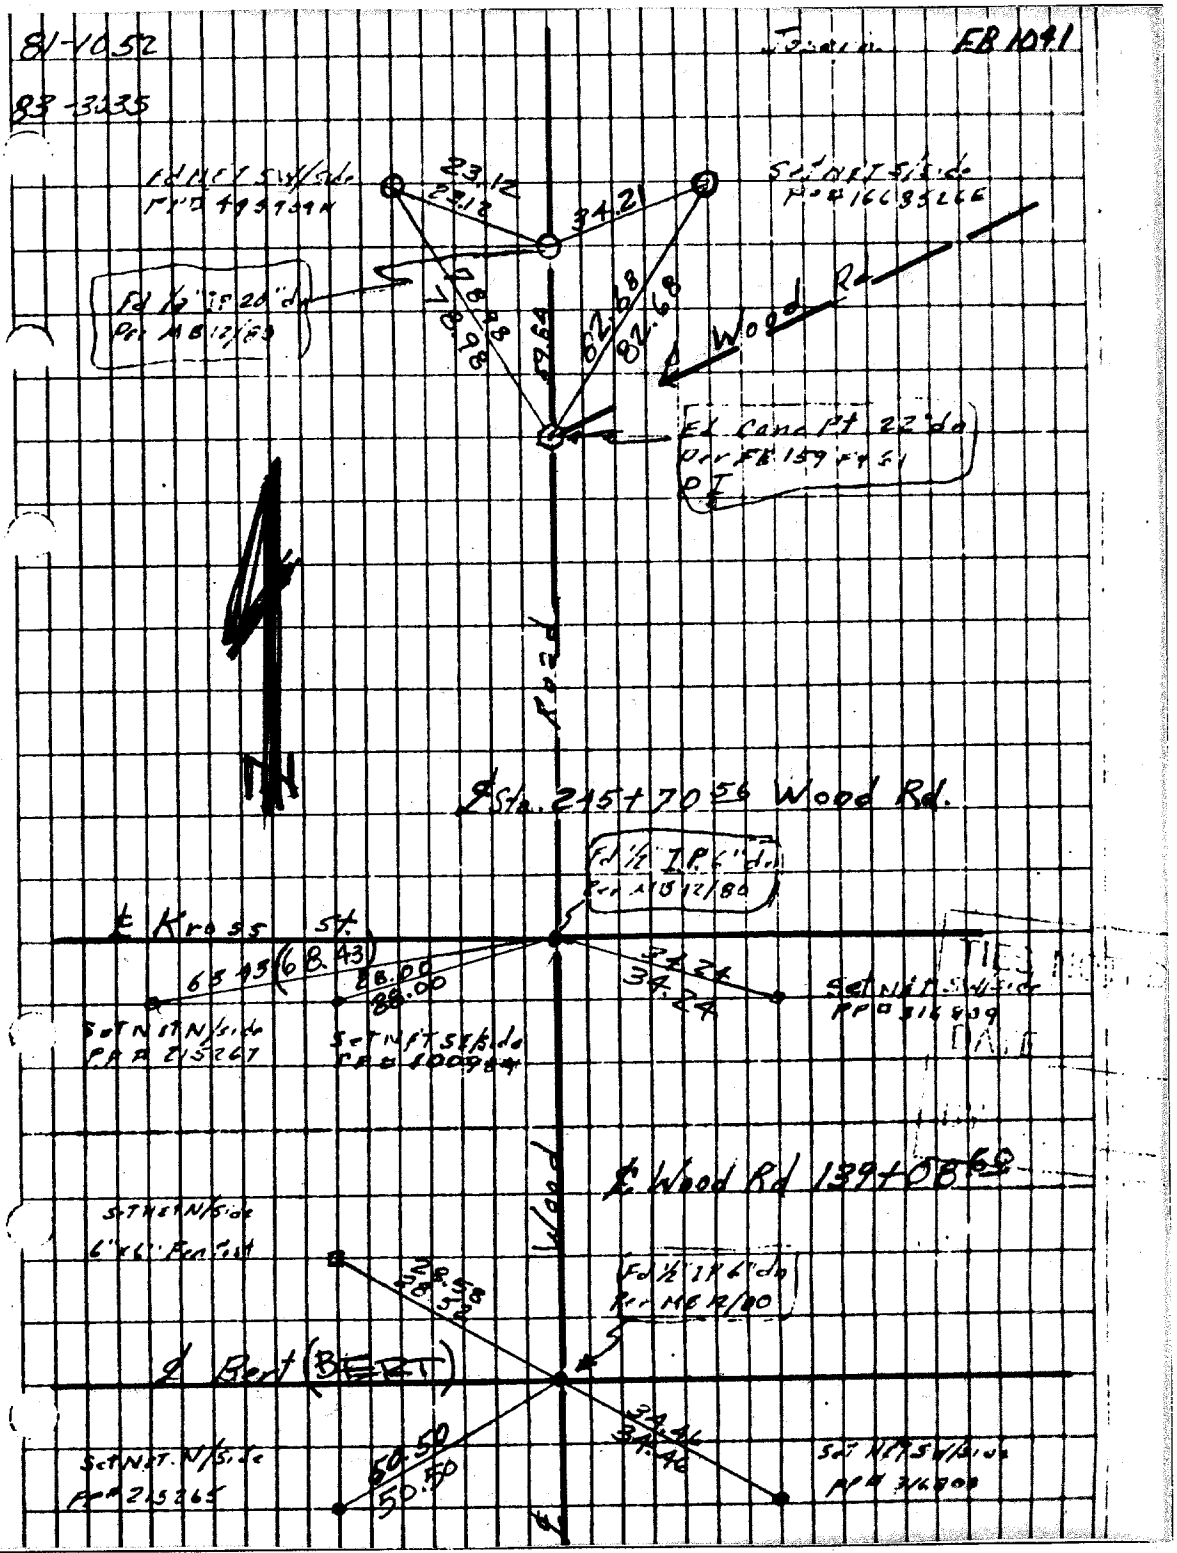 81-1052
FB 1041
83-3235
Fd NET SW/side
Set NET S/side
23.12
23.12
34.21
PP# 1668526E
Fd 1/2" IP 20" dn
Per MB 12/80
78.98
78.98
59.64
82.68
82.68
Wood Rd
Fd Conc Pt 22" dn
Per FB 159 Pg 51
P I
N
Road
℄ Sta. 245+70 56 Wood Rd.
Fd 1/2 I.P. 6" dn
Per MB 12/80
℄ Kross St.
68.43 (68.43)
88.00
88.00
34.24
34.24
Set NET N/side
PP# 215267
Set NET SE/side
Set NET SW/side
PP# 316809
TIES
DATE
Wood
℄ Wood Rd 139+08 60
Set NET N/Side
6"x6" Fen Post
28.58
28.58
Fd 1/2" IP 6" dn
Per MB 12/80
℄ Bert (BERT)
50.50
50.50
34.46
34.46
Set NET. N/Side
PP# 215265
Set NET SW/Side
PP# 316808
℄